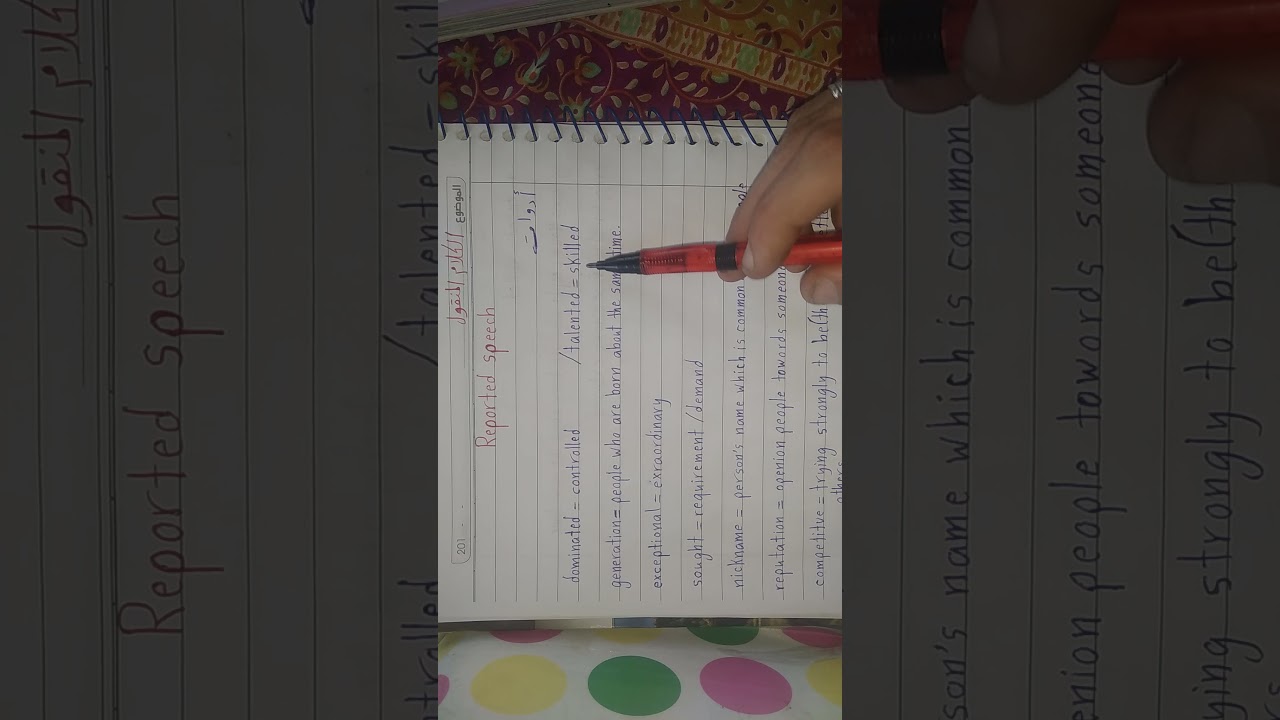 الموضوع الكلام المنقول
201
Reported speech
أدوات
dominated = controlled /talented = skilled
generation = people who are born about the same time.
exceptional = exraordinary
sought = requirement / demand
nickname = person's name which is common
reputation = openion people towards someone
competitve = trying strongly to be(th
others